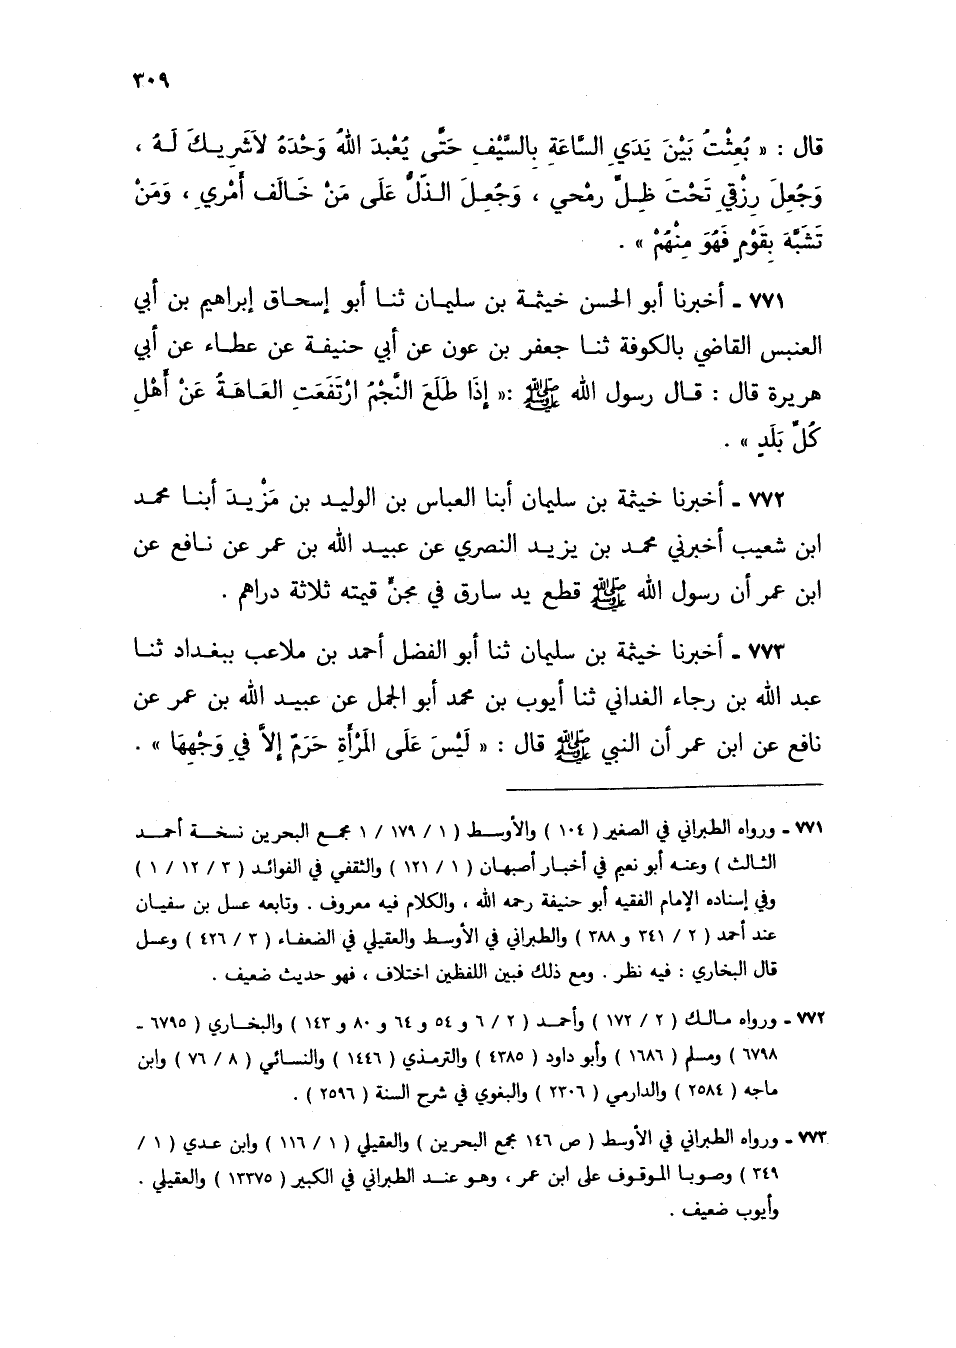 ٣٠٩
قال : « بُعِثْتُ بَيْنَ يَدَيِ السَّاعَةِ بِالسَّيْفِ حَتَّى يُعْبَدَ اللهُ وَحْدَهُ لاَشَرِيكَ لَهُ ،
وَجُعِلَ رِزْقِي تَحْتَ ظِلِّ رمْحي ، وَجُعِلَ الذّلُّ عَلَى مَنْ خَالَفَ أَمْرِي ، وَمَنْ
تَشَبَّهَ بِقَوْمٍ فَهُوَ مِنْهُمْ » .
٧٧١ ـ أخبرنا أبو الحسن خيثمة بن سليمان ثنا أبو إسحاق إبراهيم بن أبي
العنبس القاضي بالكوفة ثنا جعفر بن عون عن أبي حنيفة عن عطاء عن أبي
هريرة قال : قال رسول الله ﷺ :« إِذَا طَلَعَ النَّجْمُ ارْتَفَعَتِ العَاهَةُ عَنْ أَهْلِ
كُلِّ بَلَدٍ » .
٧٧٢ ـ أخبرنا خيثمة بن سليمان أبنا العباس بن الوليد بن مَزْيدَ أبنا محمد
ابن شعيب أخبرني محمد بن يزيد النصري عن عبيد الله بن عمر عن نافع عن
ابن عمر أن رسول الله ﷺ قطع يد سارق في مجنٍّ قيمته ثلاثة دراهم .
٧٧٣ ـ أخبرنا خيثمة بن سليمان ثنا أبو الفضل أحمد بن ملاعب ببغداد ثنا
عبد الله بن رجاء الغداني ثنا أيوب بن محمد أبو الجمل عن عبيد الله بن عمر عن
نافع عن ابن عمر أن النبي ﷺ قال : « لَيْسَ عَلَى المَرْأَةِ حَرَمٌ إلاَّ في وَجْهِهَا » .
٧٧١ ـ ورواه الطبراني في الصغير ( ١٠٤ ) والأوسط ( ١ / ١٧٩ / ١ مجمع البحرين نسخة أحمد
الثالث ) وعنه أبو نعيم في أخبار أصبهان ( ١ / ١٢١ ) والثقفي في الفوائد ( ٣ / ١٢ / ١ )
وفي إسناده الإمام الفقيه أبو حنيفة رحمه الله ، والكلام فيه معروف . وتابعه عسل بن سفيان
عند أحمد ( ٢ / ٣٤١ و ٣٨٨ ) والطبراني في الأوسط والعقيلي في الضعفاء ( ٣ / ٤٢٦ ) وعسل
قال البخاري : فيه نظر . ومع ذلك فبين اللفظين اختلاف ، فهو حديث ضعيف .
٧٧٢ ـ ورواه مالك ( ٢ / ١٧٢ ) وأحمد ( ٢ / ٦ و ٥٤ و ٦٤ و ٨٠ و ١٤٣ ) والبخاري ( ٦٧٩٥ ـ
٦٧٩٨ ) ومسلم ( ١٦٨٦ ) وأبو داود ( ٤٣٨٥ ) والترمذي ( ١٤٤٦ ) والنسائي ( ٨ / ٧٦ ) وابن
ماجه ( ٢٥٨٤ ) والدارمي ( ٢٣٠٦ ) والبغوي في شرح السنة ( ٢٥٩٦ ) .
٧٧٣ ـ ورواه الطبراني في الأوسط ( ص ١٤٦ مجمع البحرين ) والعقيلي ( ١ / ١١٦ ) وابن عدي ( ١ /
٣٤٩ ) وصوبا الموقوف على ابن عمر ، وهو عند الطبراني في الكبير ( ١٣٣٧٥ ) والعقيلي .
وأيوب ضعيف .